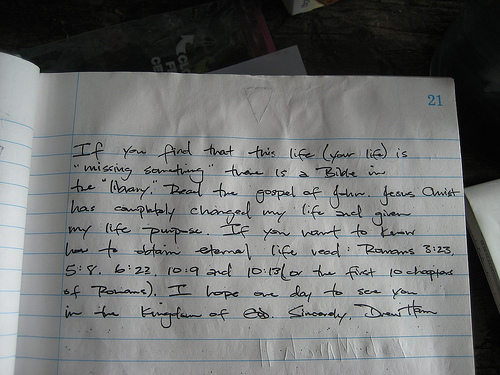 21
If you find that this life (your life) is
"missing something" there is a Bible in
the "library." Read the gospel of John. Jesus Christ
has completely changed my life and given
my life purpose. If you want to know
how to obtain eternal life read: Romans 3:23,
5:8, 6:23, 10:9 and 10:13 (or the first 10 chapters
of Romans). I hope one day to see you
in the Kingdom of God. Sincerely, Drew Ham